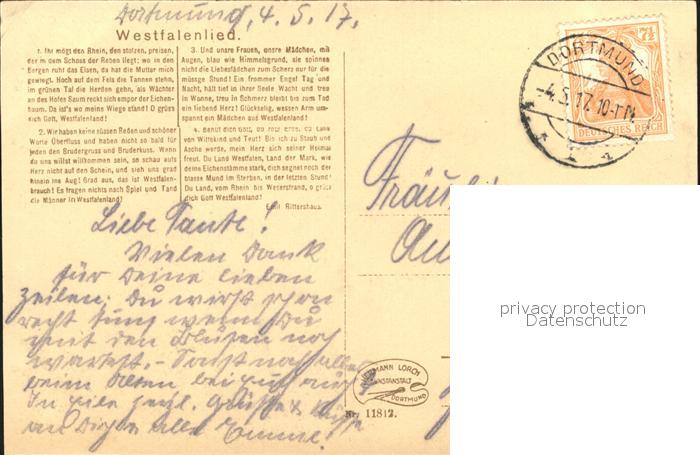 Dortmund, 4. 5. 17.
Westfalenlied.
1. Ihr mögt den Rhein, den stolzen, preisen,
der in dem Schoss der Reben liegt; wo in den
Bergen ruht das Eisen, da hat die Mutter mich
gewiegt. Hoch auf dem Fels die Tannen stehn,
im grünen Tal die Herden gehn, als Wächter
an des Hofes Saum reckt sich empor der Eichen-
baum. Da ist's wo meine Wiege stand! O grüss
dich Gott, Westfalenland!
2. Wir haben keine süssen Reden und schöner
Worte Überfluss und haben nicht so bald für
jeden den Brudergruss und Bruderkuss. Wenn
du uns willst willkommen sein, so schau aufs
Herz nicht auf den Schein, und sieh uns grad
hinein ins Aug! Grad aus, das ist Westfalen-
brauch! Es fragen nichts nach Spiel und Tand
die Männer in Westfalenland!
3. Und unsre Frauen, unsre Mädchen, mit
Augen, blau wie Himmelsgrund, sie spinnen
nicht die Liebesfädchen zum Scherz nur für die
müsse Stund! Ein frommer Engel Tag und
Nacht, hält tief in ihrer Seele Wacht und treu
in Wonne, treu in Schmerz bleibt bis zum Tod
ein liebend Herz! Glückselig, wessen Arm um-
spannt ein Mädchen aus Westfalenland!
4. Behüt dich Gott, du rote Erde, du Land
von Wittekind und Teut! Bis ich zu Staub und
Asche werde, mein Herz sich seiner Heimat
freut. Du Land Westfalen, Land der Mark, wie
deine Eichenstämme stark, dich segnet noch der
blasse Mund im Sterben, in der letzten Stund!
Du Land, vom Rhein bis Weserstrand, o grüss
dich Gott Westfalenland!
Emil Rittershaus.
Liebe Tante!
Vielen Dank
für Deine lieben
Zeilen. Du wirst schon
recht wenn Du
mit den Blusen noch
wartest. - Sonst noch alles
beim Alten bei
In Grüsse &
DORTMUND
-4.5.17. 10-11 N.
7½
DEUTSCHES REICH
Fräulein
HERMANN LORCH
KUNSTANSTALT
DORTMUND
Nr. 11812.
privacy protection
Datenschutz